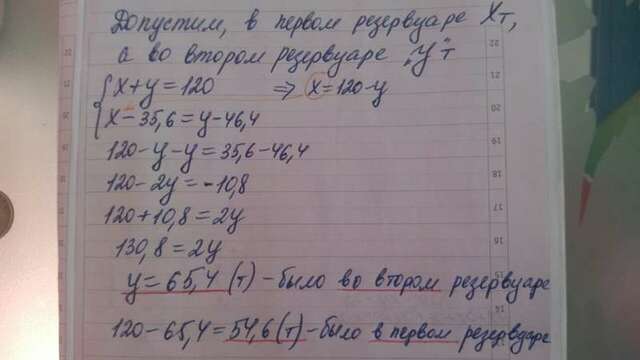 Допустим, в первом резервуаре Xт,
а во втором резервуаре „y" т
{x+y=120 => x=120-y
x-35,6=y-46,4
120-y-y=35,6-46,4
120-2y=-10,8
120+10,8=2y
130,8=2y
y=65,4 (т) - было во втором резервуаре
120-65,4=54,6 (т) - было в первом резервуаре
22
21
20
19
18
17
16
15
14